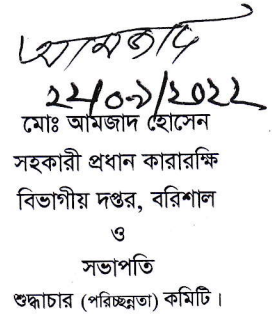 আমজাদ
২২/০৯/২০২২
মোঃ আমজাদ হোসেন
সহকারী প্রধান কারারক্ষি
বিভাগীয় দপ্তর, বরিশাল
ও
সভাপতি
শুদ্ধাচার (পরিচ্ছন্নতা) কমিটি।